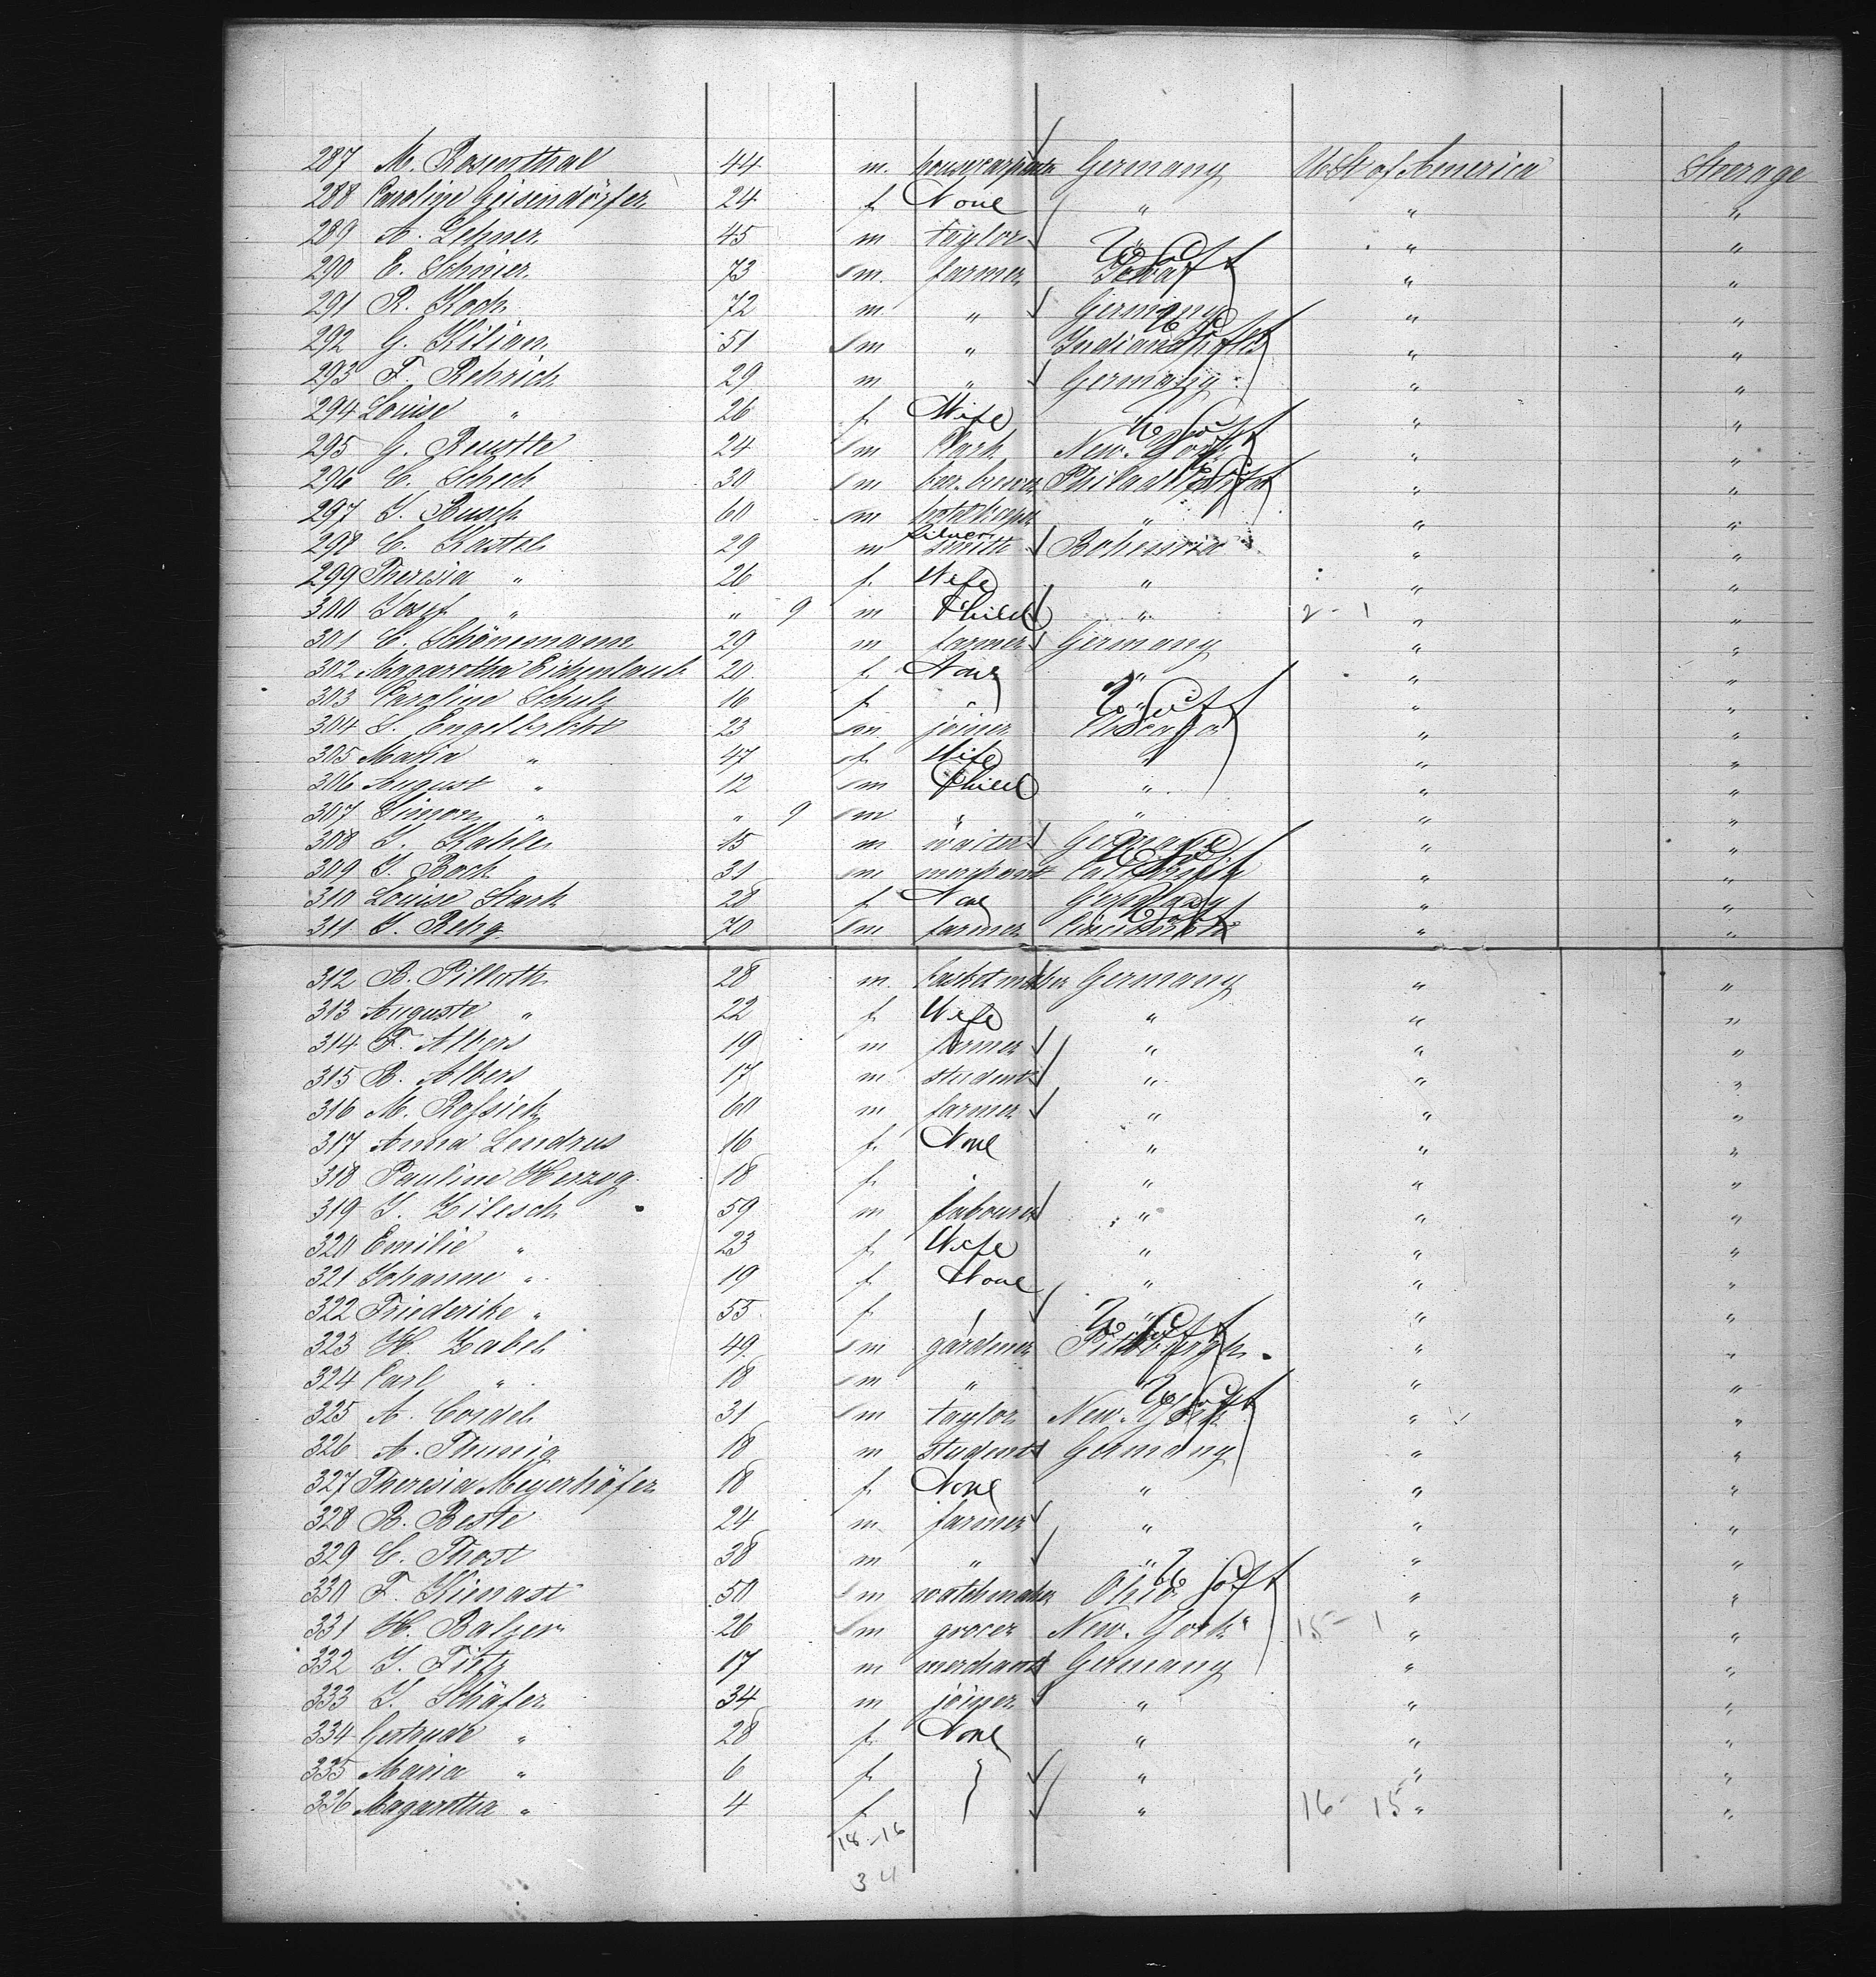 287 M. Rosenthal 44 m. Germany U. St. of America Steerage
288 Caroline Geisendörfer 24 f None " " "
289 A. Lehner 45 m taylor " " "
290 E. Schnier 73 m. farmer Iowa " "
291 R. Koch 72 m " Germany " "
292 G. Kilian 51 m " " "
293 F. Rehrich 29 m " Germany " "
294 Louise " 26 f. Wife " " "
295 G. 24 m New-York " "
296 C. Schech 30 m Philadelphia " "
297 J. Busch 60 m " " "
298 C. Kastel 29 m Silver smith Bohemia " "
299 Theresia " 26 f. Wife " " "
300 Josef " " 9 m Child " 2-1 " "
301 C. Schönemann 29 m farmer Germany " "
302 Magaretha Eichenlaub 20 f. None " " "
303 Caroline Schulz 16 f " " " "
304 S. Engelbrecht 23 m joiner Chicago " "
305 Maria " 47 f. Wife " " "
306 August " 12 m Child " " "
307 Simon " " 9 m " " " "
308 J. Kahle 15 m waiter Germany " "
309 J. Bock 31 m merchant " "
310 Louise Stark 28 f None Germany " "
311 J. Rehg 70 m farmer Cincinnati " "
312 B. Pilloth 28 m. basketmaker Germany " "
313 Auguste " 22 f. Wife " " "
314 F. Albers 19 m farmer " " "
315 B. Albers 17 m student " " "
316 M. Rossick 60 m farmer " " "
317 Anna Lendrus 16 f. None " " "
318 Pauline Herzog 18 f. " " "
319 J. Zilesch 59 m labourer " " "
320 Emilie " 23 f. Wife " " "
321 Johanne " 19 f. None " " "
322 Friederike " 55 f " " "
323 H. Zabel 49 m gardener Pittsburgh " "
324 Carl " 18 m " " " "
325 A. Cordel 31 m taylor New-York " "
326 A. Thunig 18 m student Germany " "
327 Theresia Meyerhöfer 18 f. None " " "
328 B. Beste 24 m farmer " " "
329 C. Thost 38 m " " " "
330 F. Kienast 50 m watchmaker Ohio " "
331 H. Balzer 26 m grocer New-York 15-1 " "
332 J. Fitz 17 m merchant Germany " "
333 J. Schäfer 34 m joiner " " "
334 Gertrude " 28 f. None " " "
335 Maria " 6 f. " " "
336 Magaretha " 4 f " 16-15 " "
18-16
34